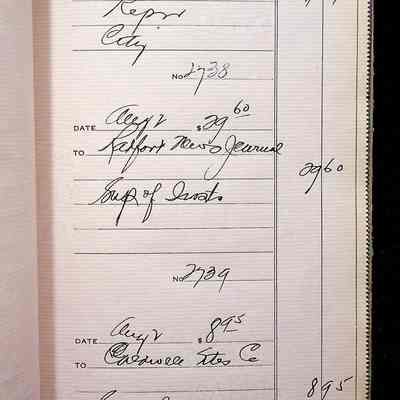 Repr
City
No 2738
DATE Aug 2 $ 29 60
TO Radford News Journal
29 60
Sup of Insts
No 2739
DATE Aug 2 $ 8 95
TO Caldwell Sites Co
8 95